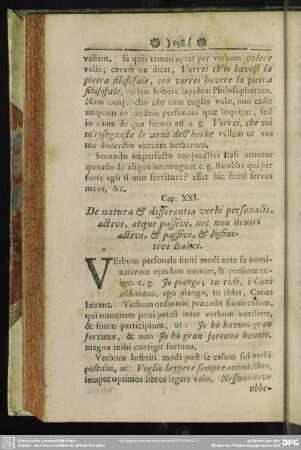 ) 198 (
vellem. Si quis tamen optet per verbum volere
velle; caveat ne dicat, Vorrei ch'io havessi la
pietra filosofale, pro vorrei havere la pietra
filosofale, vellem habere lapidem Philosophorum.
Nam conjunctio che cum voglio volo, non cadit
unquam in eandem personam quæ loquitur, sed
in aliam de qua sermo est. e. g. Vorrei, che voi
m'insegnaste le virtù dell' herbe vellem ut vos
me doceretis virtutes herbarum.
Secundo imperfecto conjunctivi Itali utuntur
quando de aliquo interrogant. e. g. Sarebbe qui per
forte egli il mio servitore? esset hic forte servus
meus, &c.
Cap. XXI.
De natura & differentia verbi personalis,
activi, atque passivi, nec non neutri
activi, & passivi, & Infini-
tivi Italici.
VErbum personale finiti modi ante se nomi-
nativum ejusdem numeri, & personæ exi-
git. e. g. Jo piango; tu ridi, i Cani
abbaiano, ego plango, tu rides, Canes
latrant. Verbum ordinariè præcedit suum casum,
qui nunquam poni potest inter verbum auxiliare,
& suum participium, ut: Jo hò havuto gran
fortuna, & non Jo hò gran fortuna havuto,
magna mihi contigit fortuna.
Verbum Infiniti modi post se casum sui verbi
postulat, ut: Voglio leggere sempre ottimi libri,
semper optimos libros legere volo, Nessuno deve
ubbe-